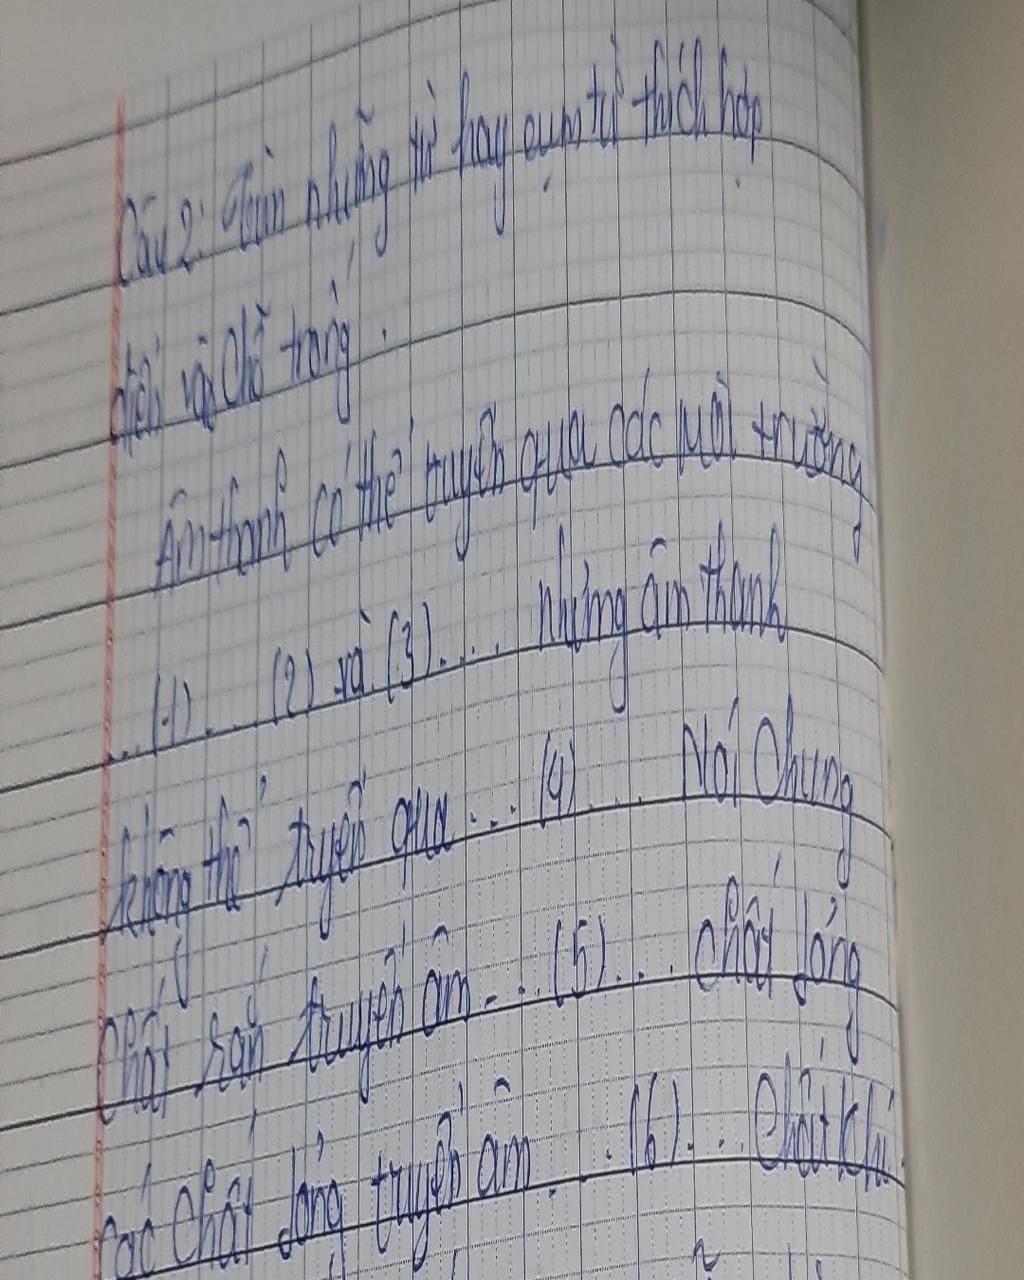 Câu 2: Tìm những từ hay cụm từ thích hợp
điền vào chỗ trống.
Âm thanh có thể truyền qua các môi trường
...(1)... (2) và (3).... nhưng âm thanh
không thể truyền qua ... (4).... Nói Chung
Chất rắn truyền âm ... (5)... chất lỏng
các chất lỏng truyền âm ... (6)... chất khí.